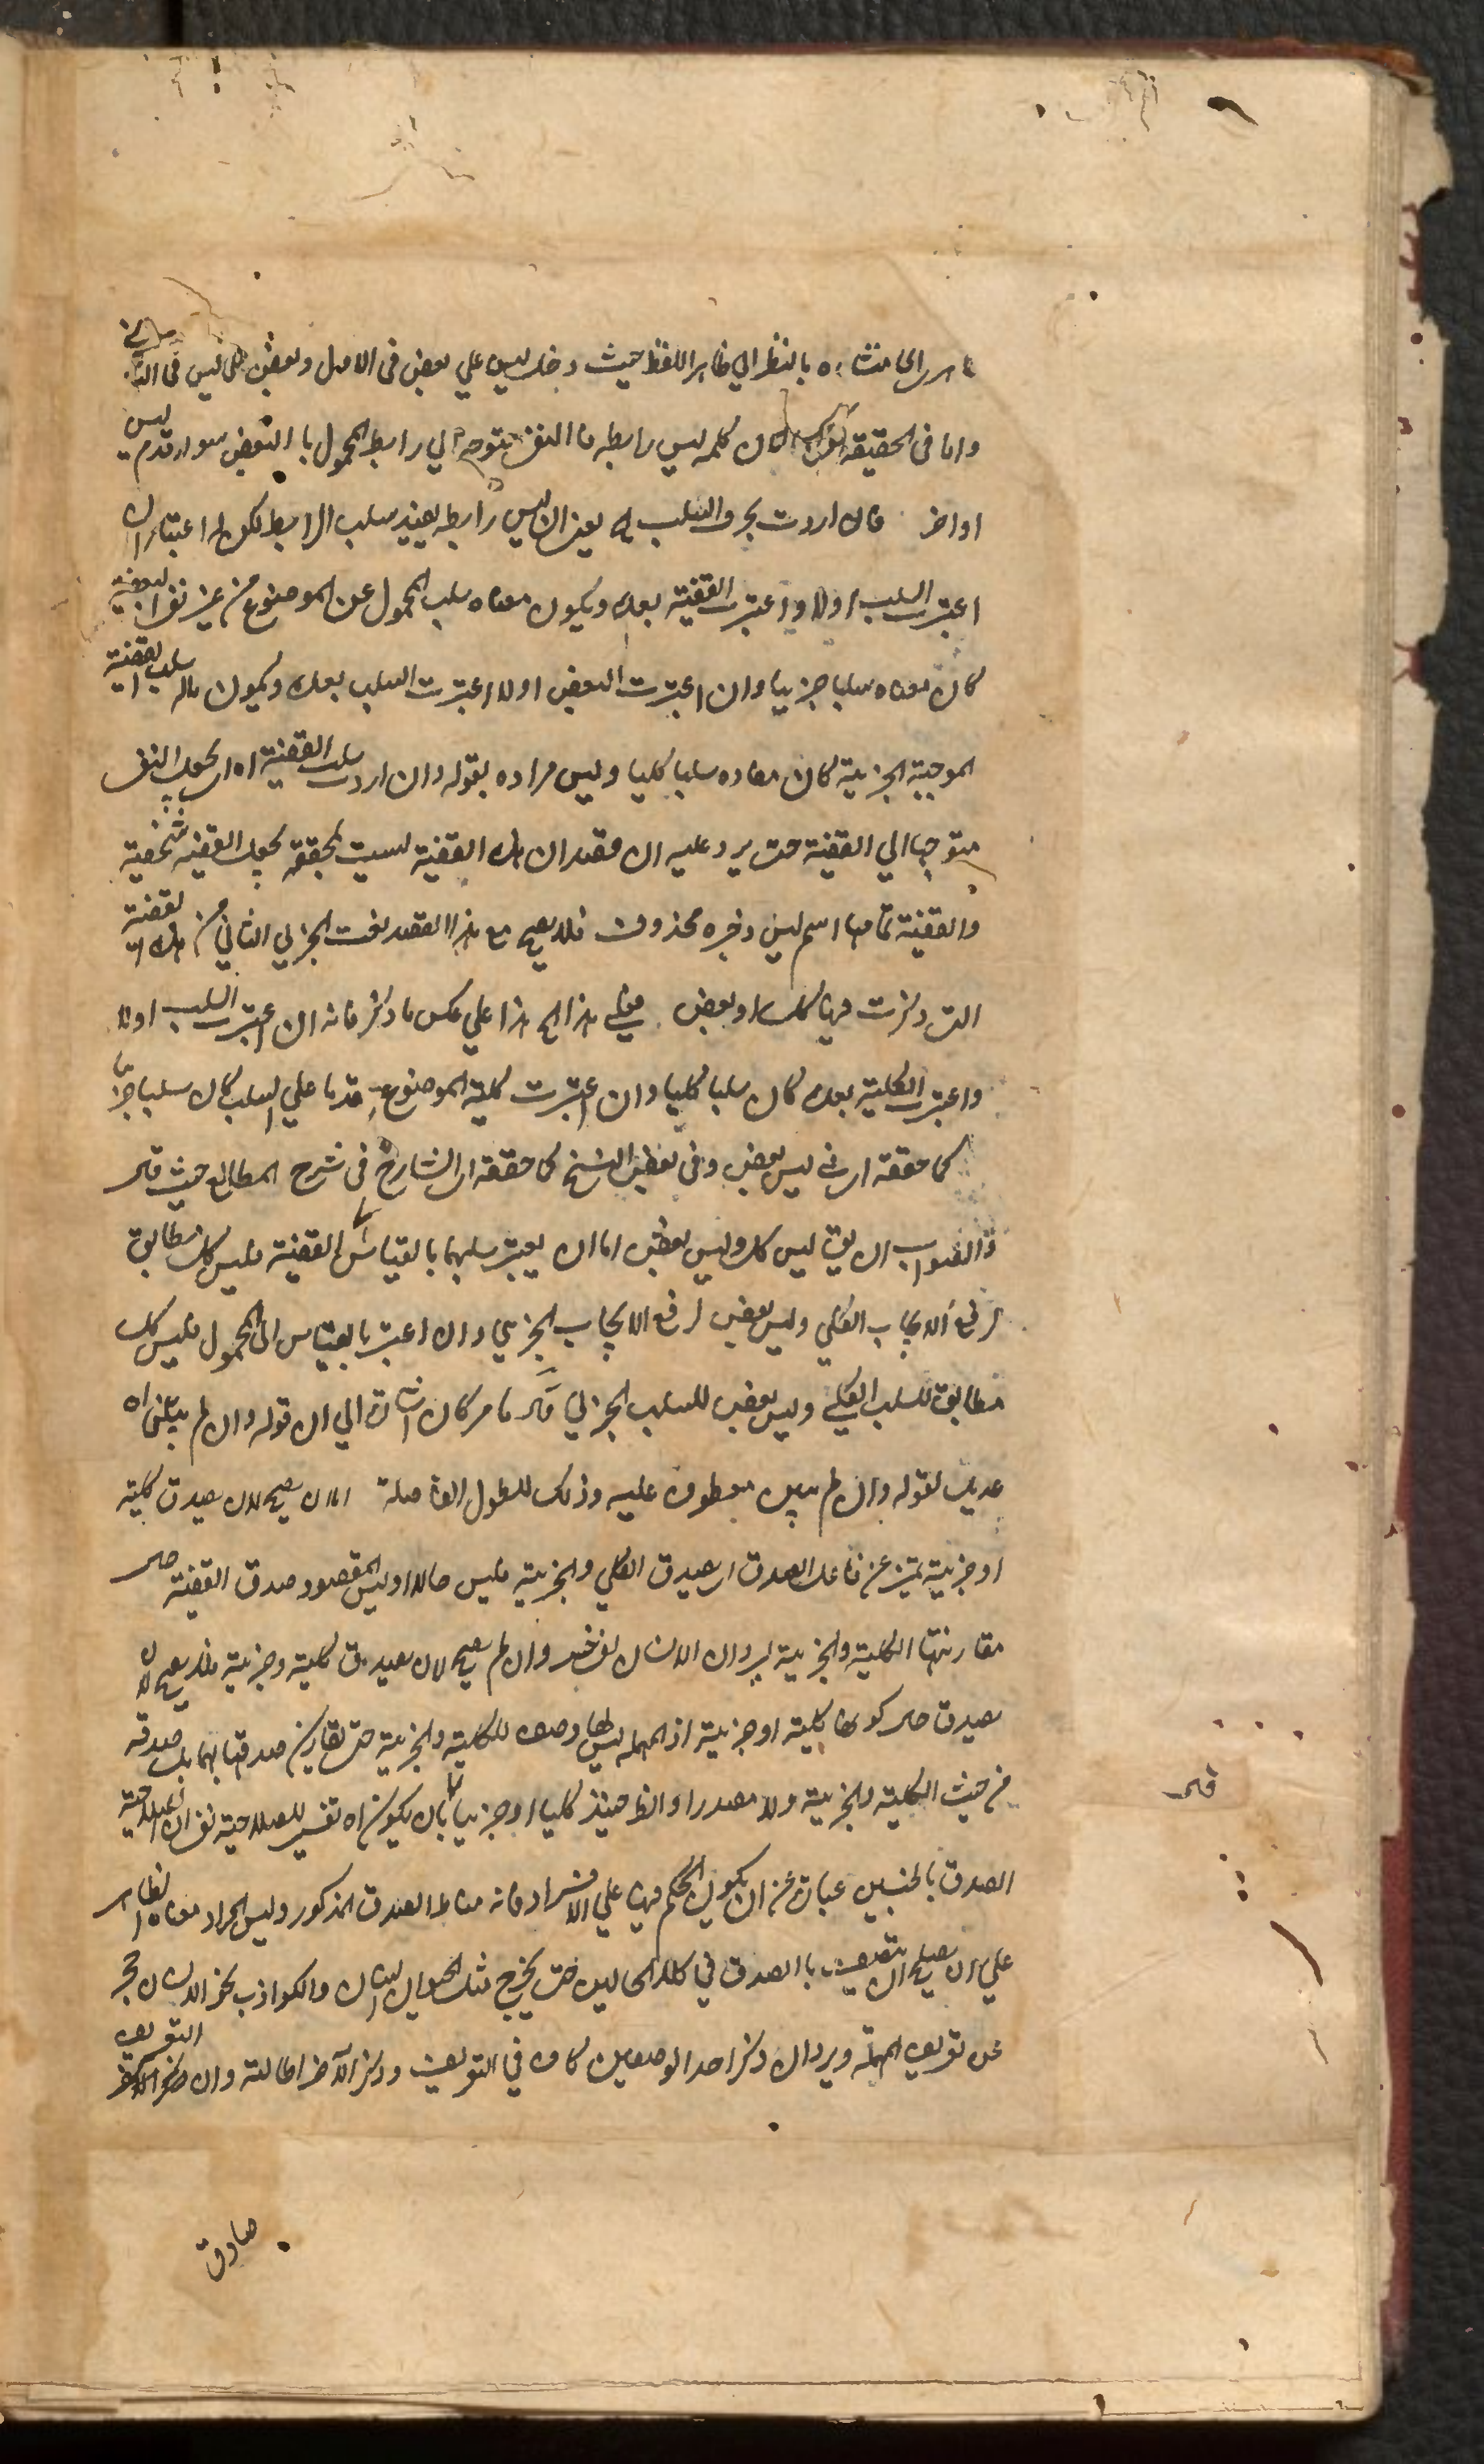 بالنظر الي ظاهر اللفظ حيث دخل ليس علي بعض في الاول وبعض علي ليس في
واما في الحقيقة كلمه ليس رابطه فا النفي يتوجه الي رابط المحمول با البعض سواء قدم ليس
او اخر فان اردت بحرف السلب اه يعني ان ليس رابطه يفيد سلب الرابط لكن له اعتباران ان
اعتبرت السلب اولا واعتبرت القضية بعده ويكون معناه سلب المحمول عن الموضوع من غير نفي البعضية
كان معناه سلبا جزييا وان اعتبرت البعض اولا اعتبرت السلب بعده ويكون ماله سلب القضية
الموجبة الجزيية كان مفاده سلبا كليا وليس مراده بقوله وان اردت سلب القضية اه ان يجعل النفي
متوجها الي القضية حتى يرد عليه ان قصد ان هذه القضية ليست بمحققه يجعل القضيه شخصية
والقضية تمامها اسم ليس وخبره محذوف فلا يصح مع هذا القصد نعت الجزيي الثاني من هذه القضية
التي ذكرت فيها كل او بعض فعلي هذا الخ هذا علي عكس ما ذكر فانه ان اعتبرت السلب اولا
واعتبرت الكلية بعده كان سلبا كليا وان اعتبرت كلية الموضوع مقدما علي السلب كان سلبا جزييا
كما حققه اي في ليس بعض وفي بعض النسخ كما حققه اي الشارح في شرح المطالع حيث قال
والصواب ان يق ليس كل وليس بعض اما ان يعتبر سلبهما بالقياس الي القضية فليس كل مطابق
لرفع الايجاب الكلي وليس بعض لرفع الايجاب الجزيي وان اعتبر بالقياس الي المحمول فليس كل
مطابق للسلب الكلي وليس بعض للسلب الجزيي قال ما مر كان اشارت الي ان قوله وان لم يبين اه
عديل لقوله وان لم يبين معطوف عليه وذلك لطول الفاصلة اما ان يصح لان يصدق كلية
او جزيية تميز عن فاعل الصدق اي يصدق الكلي والجزيية فليس حالا اوليس المقصود صدق القضية حال
مقارنتها الكلية والجزيية ان الانسان لفي خسر وان لم يصح لان يصدق كلية وجزيية فلا يصح لان
يصدق حال كونها كلية او جزيية اذ المهمله ليس لها وصف للكلية والجزيية حتى يقارن صدقها بهما بل صدقه
من حيث الكلية والجزيية ولا مصدرا والظ حينئذ كليا او جزييا بان يكون اه تفسير للصلاحية فان الصلاحية
الصدق بالجنسين عبارت عن ان يكون الحكم فيها علي الافراد فانه مناط الصدق المذكور وليس المراد معناه الظاهر
علي ان يصلح ان يتصف با الصدق في كلا الحالين حتى يخرج مثل الحيوان انسان والكواذب نحو الانسان حجر
عن تعريف المهمله ويرد ان ذكر احد الوصفين كاف في التعريف وذكر الاخر اطالته وان التعريف
قال
صادق